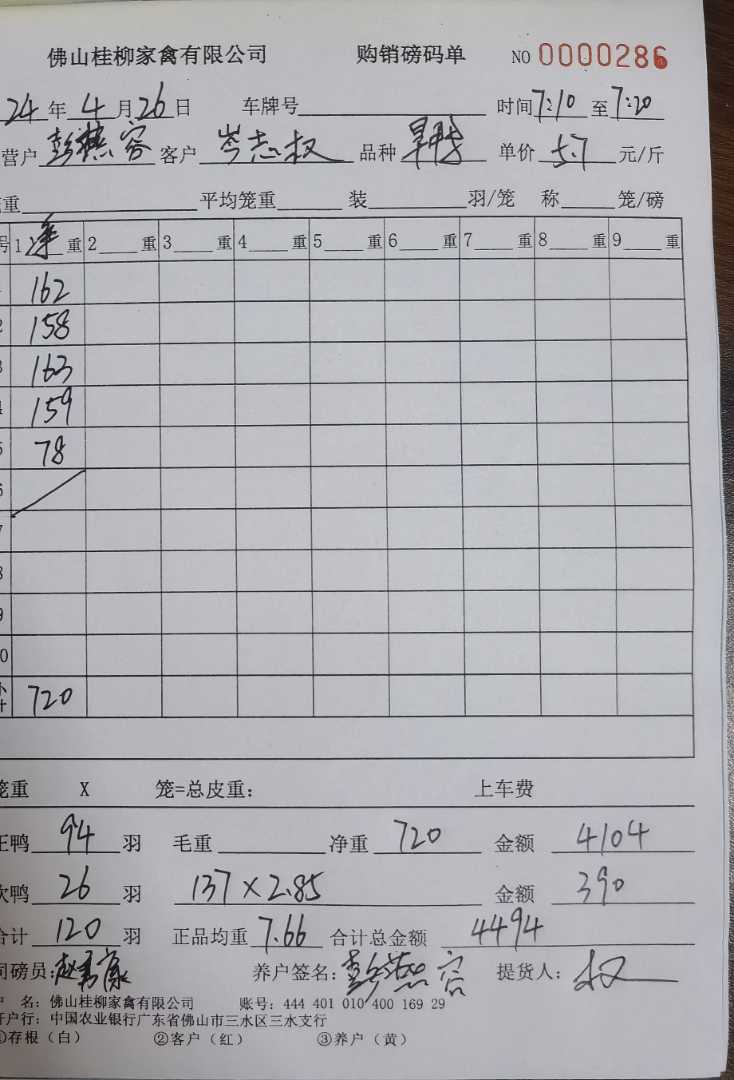 佛山桂柳家禽有限公司 购销磅码单 NO 0000286
24年4月26日 车牌号 时间7:10至7:20
营户 彭燕容 客户 岑志权 品种 单价 5.7 元/斤
重 平均笼重 装 羽/笼 称 笼/磅
号 1 净 重 2 重 3 重 4 重 5 重 6 重 7 重 8 重 9 重
162
2 158
3 163
4 159
5 78
6
7
8
9
0
小计 720
笼重 X 笼=总皮重: 上车费
正鸭 94 羽 毛重 净重 720 金额 4104
次鸭 26 羽 137×2.85 金额 390
合计 120 羽 正品均重 7.66 合计总金额 4494
司磅员: 养户签名:彭燕容 提货人:权
户 名: 佛山桂柳家禽有限公司 账号: 444 401 010 400 169 29
开户行: 中国农业银行广东省佛山市三水区三水支行
①存根(白) ②客户(红) ③养户(黄)